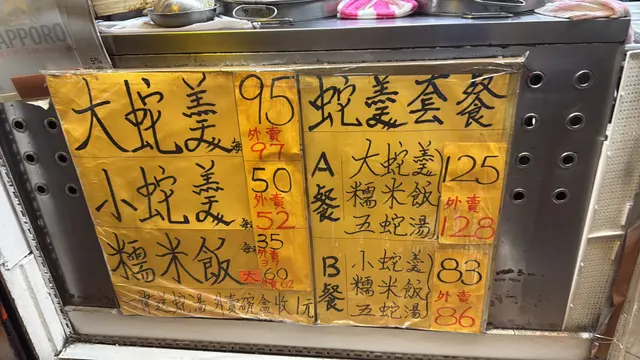 SAPPORO
5%
大蛇羹 95
外賣
97
小蛇羹 50
52
糯米飯 35
外賣
大 60
62
湯外賣碗盒收1元
蛇羹套餐
A餐
大蛇羹
糯米飯
五蛇湯
125
外賣
128
B餐
小蛇羹
糯米飯
五蛇湯
83
外賣
86